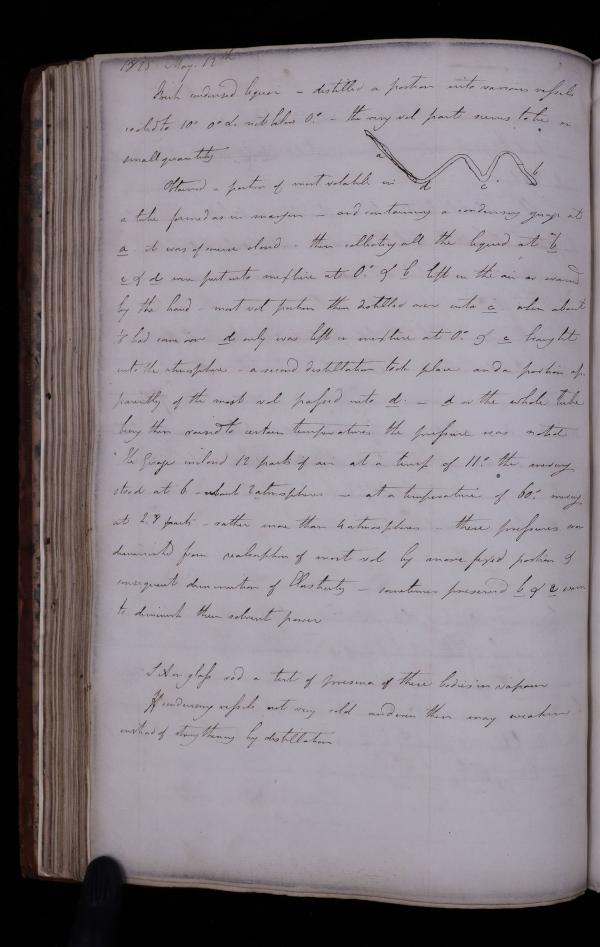 1825 May. 12th
Fresh condensed liquor - distilled a portion into various vessels
cooled to 10° 0° &c not below 0° - the very vol part seems to be in
small quantity
Obtained a portion of most volatile in
a
d
c
b
a tube formed as in margin - and containing a condensing guage at
a it was of course closed. then collecting all the liquid at b
c & d were put into mixture at 0° & b left in the air or warmed
by the hand - most vol portion then distilled over into c when about
⅓ had come over d only was left in mixture at 0° & c brought
into the atmosphere - a second distillation took place and a portion ap-
parently of the most vol passed into d. - d or the whole tube
being then raised to certain temperatures the pressure was noted
The Guage inclosed 12 parts of air at a temp of 11° the mercury
stood at 6 - about 2 atmospheres - at a temperature of 60° mercury
at 2.8 parts - rather more than 4 atmospheres - these pressures were
diminished from reabsorption of most vol by more fixed portion &
consequent diminution of Elasticity - sometimes preserved b & c cum
to diminish their solvent power
S A on glass rod a test of presence of these bodies in vapour
If condensing vessels not very cold and even then may weaken
instead of strengthening by distillation